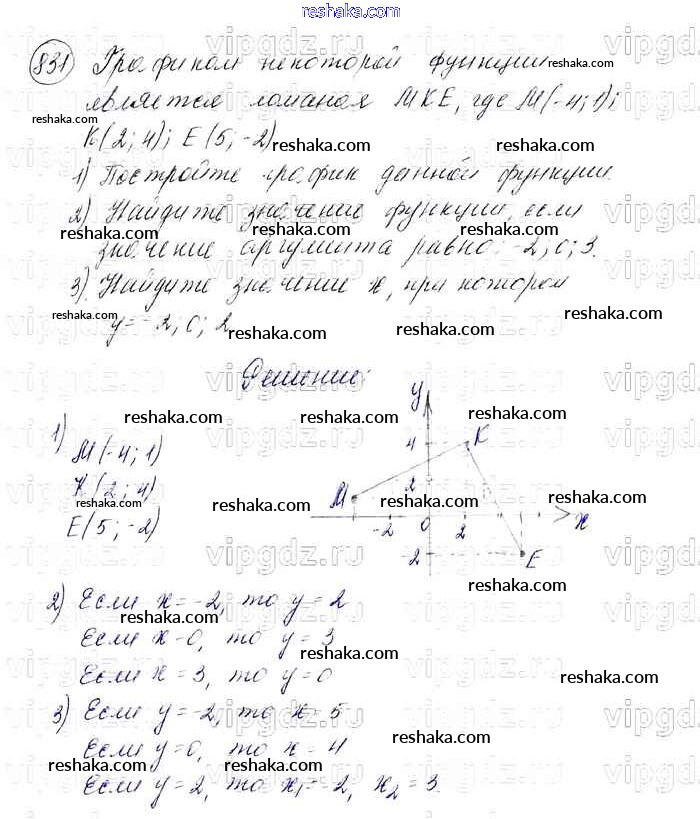 831 Графиком некоторой функции
является ломаная МКЕ, где М(-4;1);
К(2;4); Е(5;-2)
1) Постройте график данной функции.
2) Найдите значение функции, если
значение аргумента равно: -2; 0; 3.
3) Найдите значение x, при котором
y=-2; 0; 2
Решение:
1)
М(-4;1)
К(2;4)
Е(5;-2)
y
4
К
2
М
-2 0 2 x
-2
Е
2) Если x=-2, то y=2
Если x=0, то y=3
Если x=3, то y=0
3) Если y=-2, то x=5
Если y=0, то x=4
Если y=2, то x₁=-2, x₂=3.
reshaka.com
vipgdz.ru